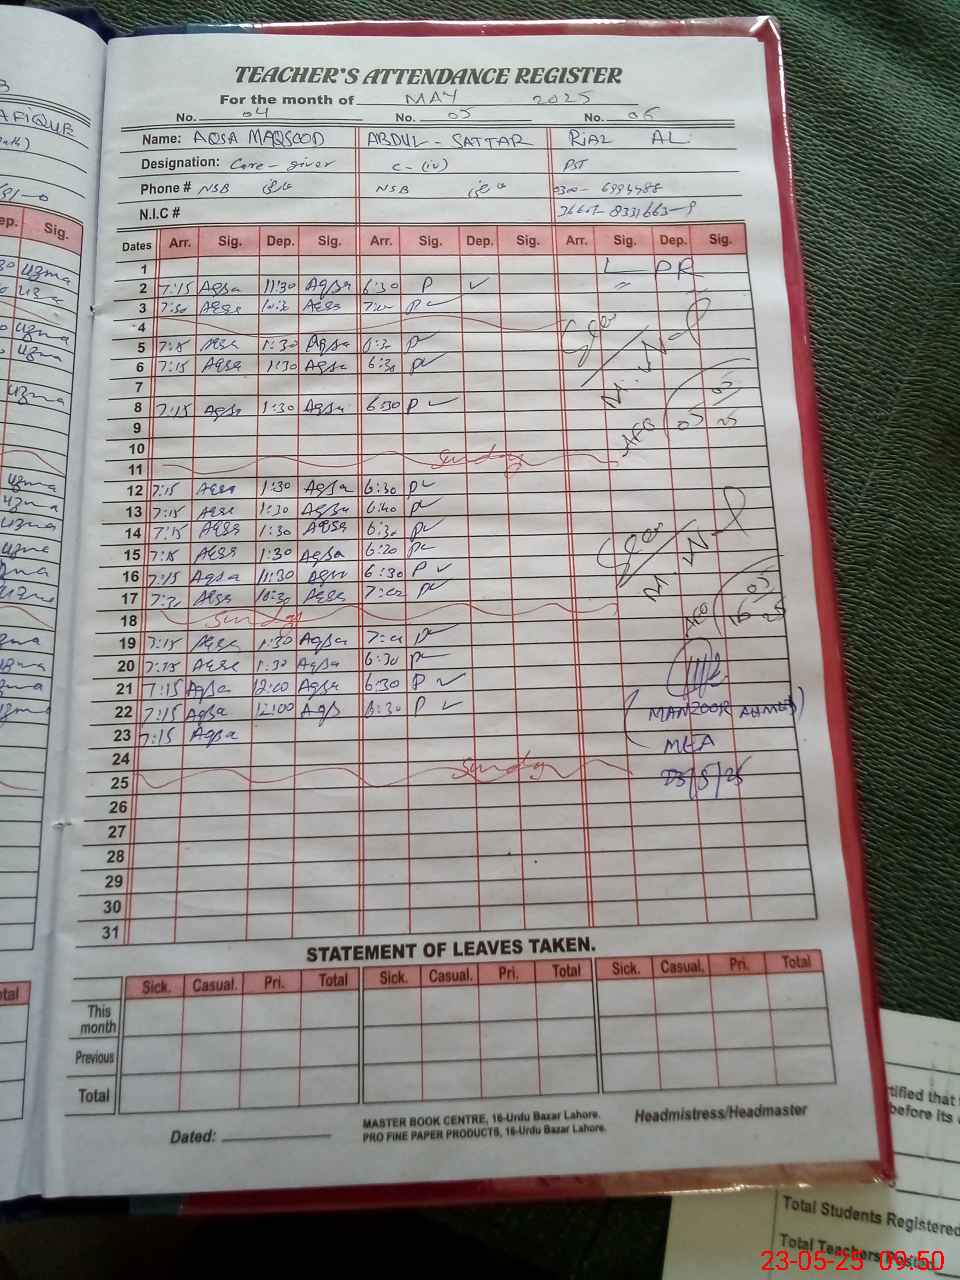 TEACHER'S ATTENDANCE REGISTER
For the month of MAY 2025
No. 04 No. 05 No. 06
Name: AQSA MAQSOOD ABDUL - SATTAR RIAZ ALI
Designation: Care - giver C - (iv) PST
Phone # NSB NSB 0300-6994988
N.I.C # 36601-8331663-9
Dates Arr. Sig. Dep. Sig. Arr. Sig. Dep. Sig. Arr. Sig. Dep. Sig.
1 LPR
2 7:15 Aqsa 11:30 Aqsa 6:30 P ✓ "
3 7:30 Aqsa 10:30 Aqsa 7:00 P ✓
4
5 7:15 Aqsa 1:30 Aqsa 6:30 P
6 7:15 Aqsa 1:30 Aqsa 6:30 P
7
8 7:15 Aqsa 1:30 Aqsa 6:30 P ✓
9
10
11 Sunday
12 7:15 Aqsa 1:30 Aqsa 6:30 P
13 7:15 Aqsa 1:30 Aqsa 6:40 P
14 7:15 Aqsa 1:30 Aqsa 6:30 P
15 7:15 Aqsa 1:30 Aqsa 6:20 P
16 7:15 Aqsa 11:30 Aqsa 6:30 P ✓
17 7:30 Aqsa 10:30 Aqsa 7:00 P
18 Sunday
19 7:15 Aqsa 1:30 Aqsa 7:00 P
20 7:15 Aqsa 1:30 Aqsa 6:30 P
21 7:15 Aqsa 12:00 Aqsa 6:30 P ✓
22 7:15 Aqsa 12:00 Aqsa 6:30 P ✓
23 7:15 Aqsa
24
25 Sunday
26
27
28
29
30
31
AEO 05 05 25
AEO 16 05 25
(MANZOOR AHMED)
MEA
23/5/25
STATEMENT OF LEAVES TAKEN.
Sick. Casual. Pri. Total Sick. Casual. Pri. Total Sick. Casual. Pri. Total
This month
Previous
Total
Dated:
MASTER BOOK CENTRE, 16-Urdu Bazar Lahore.
PRO FINE PAPER PRODUCTS, 16-Urdu Bazar Lahore.
Headmistress/Headmaster
AFIQUE
ep. Sig.
otal
rtified that
before its
Total Students Registered
Total Teachers
23-05-25 09:50